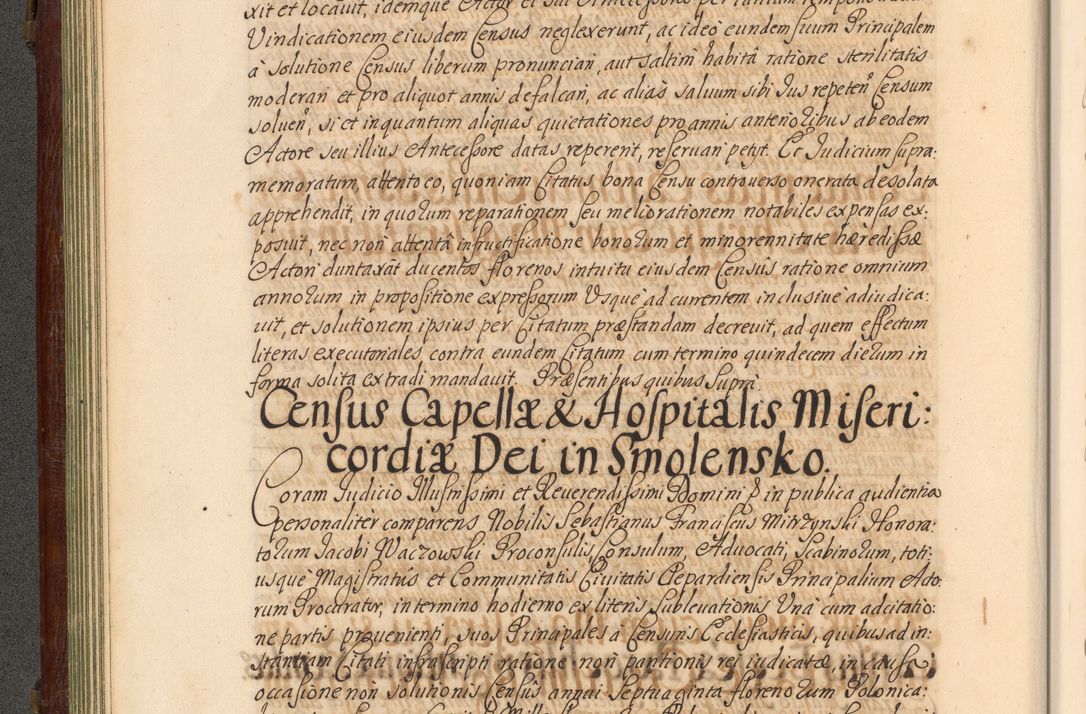 xit et locavit, idemque Actor et sui Antecessores per tantum
Vindicationem eiusdem Census neglexerunt, ac ideo eundem suum Principalem
à solutione Census liberum pronunciari, aut saltim habitâ ratione sterilitatis
moderari et pro aliquot annis defalcari, ac aliàs salvum sibi Jus repeten Censum
soluen, si et inquantum aliquas quietationes pro annis anterioribus ab eodem
Actore seu illius Antecessore datas repererit, reservari petyt. Et Judicium supra:
memoratum, attento eo, quoniam Citatus bona Censu controverso onerata desolata
apprehendit, in quorum reparationem seu meliorationem notabiles expensas ex:
posuit, nec non attentâ infructificatione bonorum et minorennitate hæredissæ
Actori duntaxàt ducentos florenos intuitu eiusdem Censûs ratione omnium
annorum in propositione expressorum Usque ad currentem inclusivè adiudica:
vit, et solutionem ipsius per Citatum præstandam decrevit, ad quem effectum
literas executoriales contra eundem Citatum cum termino quindecem dierum in
forma solita extradi mandavit. Præsentibus quibus Supra.
Census Capellæ & Hospitalis Miseri:
cordiæ Dei in Smolensko.
Coram Judicio Illustrissimi et Reverendissimi Domini in publica audientia
personaliter comparens Nobilis Sebastianus Franciscus Mitrzynski Honora:
torum Jacobi Waczowski Proconsulis, Consulum, Advocati, Scabinorum, toti:
usque Magistratûs et Communitatis Civitatis Clepardiensis Principalium Acto:
rum Procurator, in termino hodierno ex literis Sublevationis Unà cum adcitatio:
ne partis provenienti, suos Principales à Censuris Ecclesiasticis, quibus ad in:
stantiam Citati infrascripti ratione non paritionis rei iudicatæ, in causa,
occasione non solutionis Censûs annui Septuaginta florenorum Polonica: